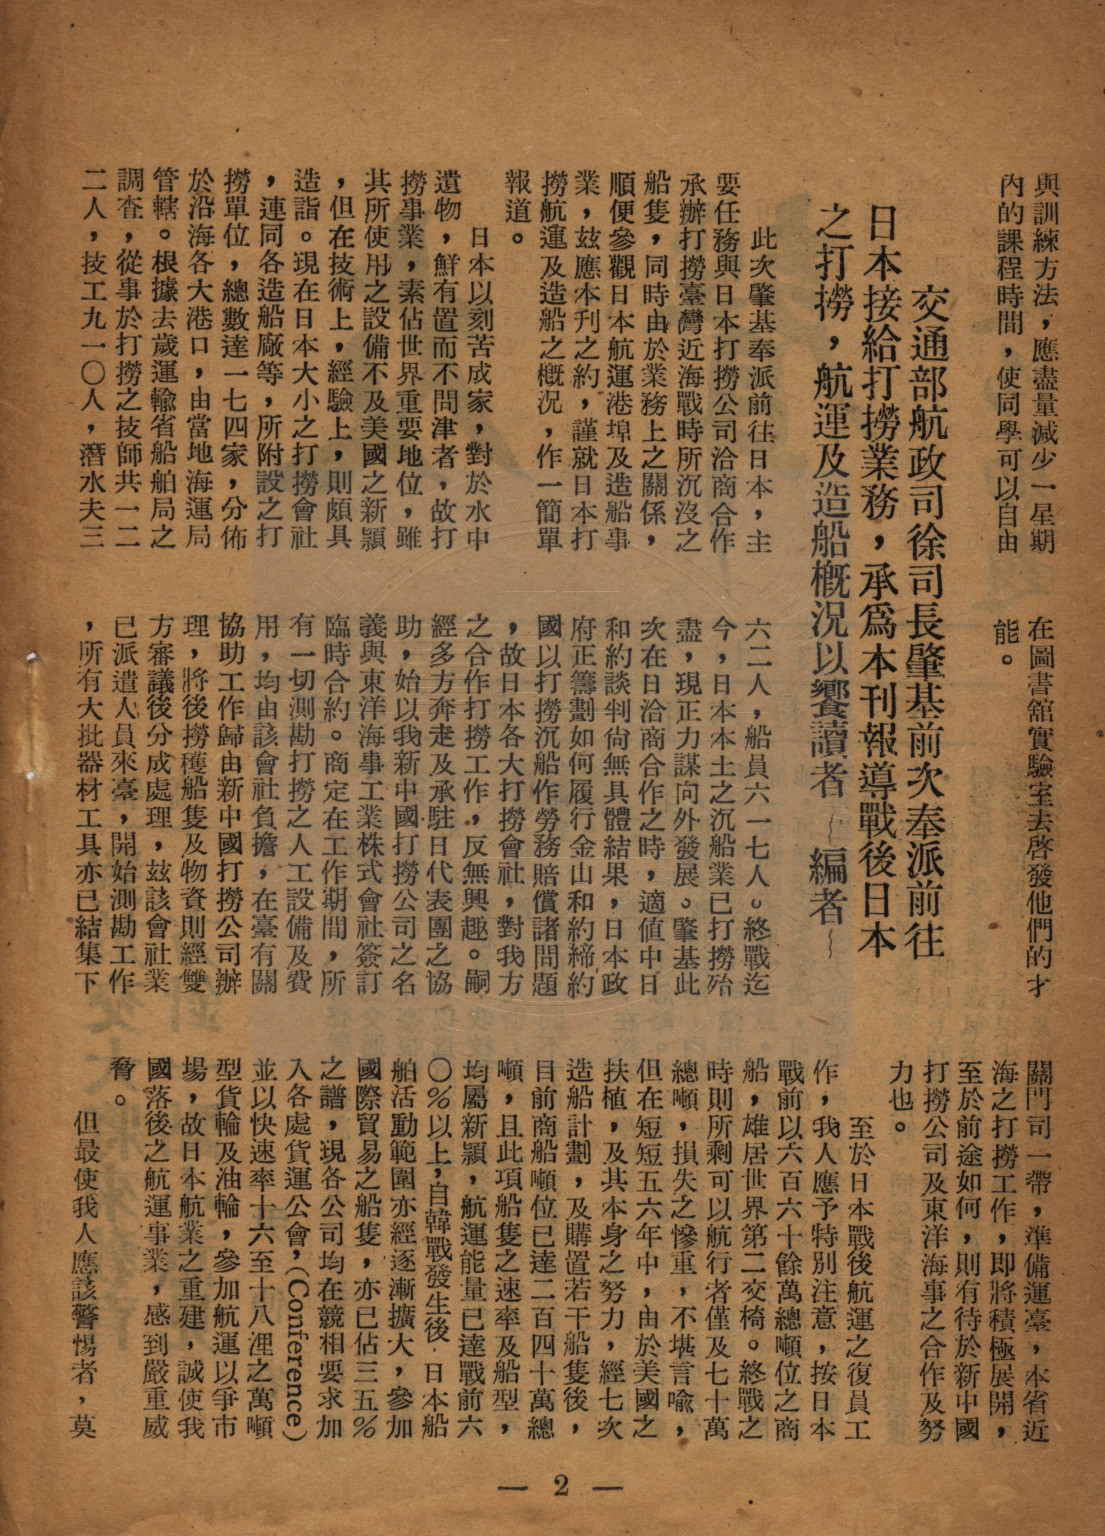 與訓練方法，應盡量減少一星期
內的課程時間，使同學可以自由
在圖書舘實驗室去啓發他們的才
能。
交通部航政司徐司長肇基前次奉派前往
日本接給打撈業務，承爲本刊報導戰後日本
之打撈，航運及造船概況以饗讀者～編者～
此次肇基奉派前往日本，主
要任務與日本打撈公司洽商合作
承辦打撈臺灣近海戰時所沉沒之
船隻，同時由於業務上之關係，
順便參觀日本航運港埠及造船事
業，茲應本刊之約，謹就日本打
撈航運及造船之概況，作一簡單
報道。
日本以刻苦成家，對於水中
遺物，鮮有置而不問津者，故打
撈事業，素佔世界重要地位，雖
其所使用之設備不及美國之新穎
，但在技術上，經驗上，則頗具
造詣。現在日本大小之打撈會社
，連同各造船廠等，所附設之打
撈單位，總數達一七四家，分佈
於沿海各大港口，由當地海運局
管轄。根據去歲運輸省船舶局之
調查，從事於打撈之技師共一二
二人，技工九一〇人，潛水夫三
六二人，船員六一七人。終戰迄
今，日本本土之沉船業已打撈殆
盡，現正力謀向外發展。肇基此
次在日洽商合作之時，適值中日
和約談判尙無具體結果，日本政
府正籌劃如何履行金山和約締約
國以打撈沉船作勞務賠償諸問題
，故日本各大打撈會社，對我方
之合作打撈工作，反無興趣。嗣
經多方奔走及承駐日代表團之協
助，始以我新中國打撈公司之名
義與東洋海事工業株式會社簽訂
臨時合約。商定在工作期間，所
有一切測勘打撈之人工設備及費
用，均由該會社負擔，在臺有關
協助工作歸由新中國打撈公司辦
理，將後撈穫船隻及物資則經雙
方審議後分成處理，茲該會社業
已派遣人員來臺，開始測勘工作
，所有大批器材工具亦已結集下
關門司一帶，準備運臺，本省近
海之打撈工作，即將積極展開，
至於前途如何，則有待於新中國
打撈公司及東洋海事之合作及努
力也。
至於日本戰後航運之復員工
作，我人應予特別注意，按日本
戰前以六百六十餘萬總噸位之商
船，雄居世界第二交椅。終戰之
時則所剩可以航行者僅及七十萬
總噸，損失之慘重，不堪言喩，
但在短短五六年中，由於美國之
扶植，及其本身之努力，經七次
造船計劃，及購置若干船隻後，
目前商船噸位已達二百四十萬總
噸，且此項船隻之速率及船型，
均屬新穎，航運能量已達戰前六
〇％以上，自韓戰發生後，日本船
舶活動範圍亦經逐漸擴大，參加
國際貿易之船隻，亦已佔三五％
之譜，現各公司均在競相要求加
入各處貨運公會，（Conference）
並以快速率十六至十八浬之萬噸
型貨輪及油輪，參加航運以爭市
場，故日本航業之重建，誠使我
國落後之航運事業，感到嚴重威
脅。
但最使我人應該警惕者，莫
— 2 —